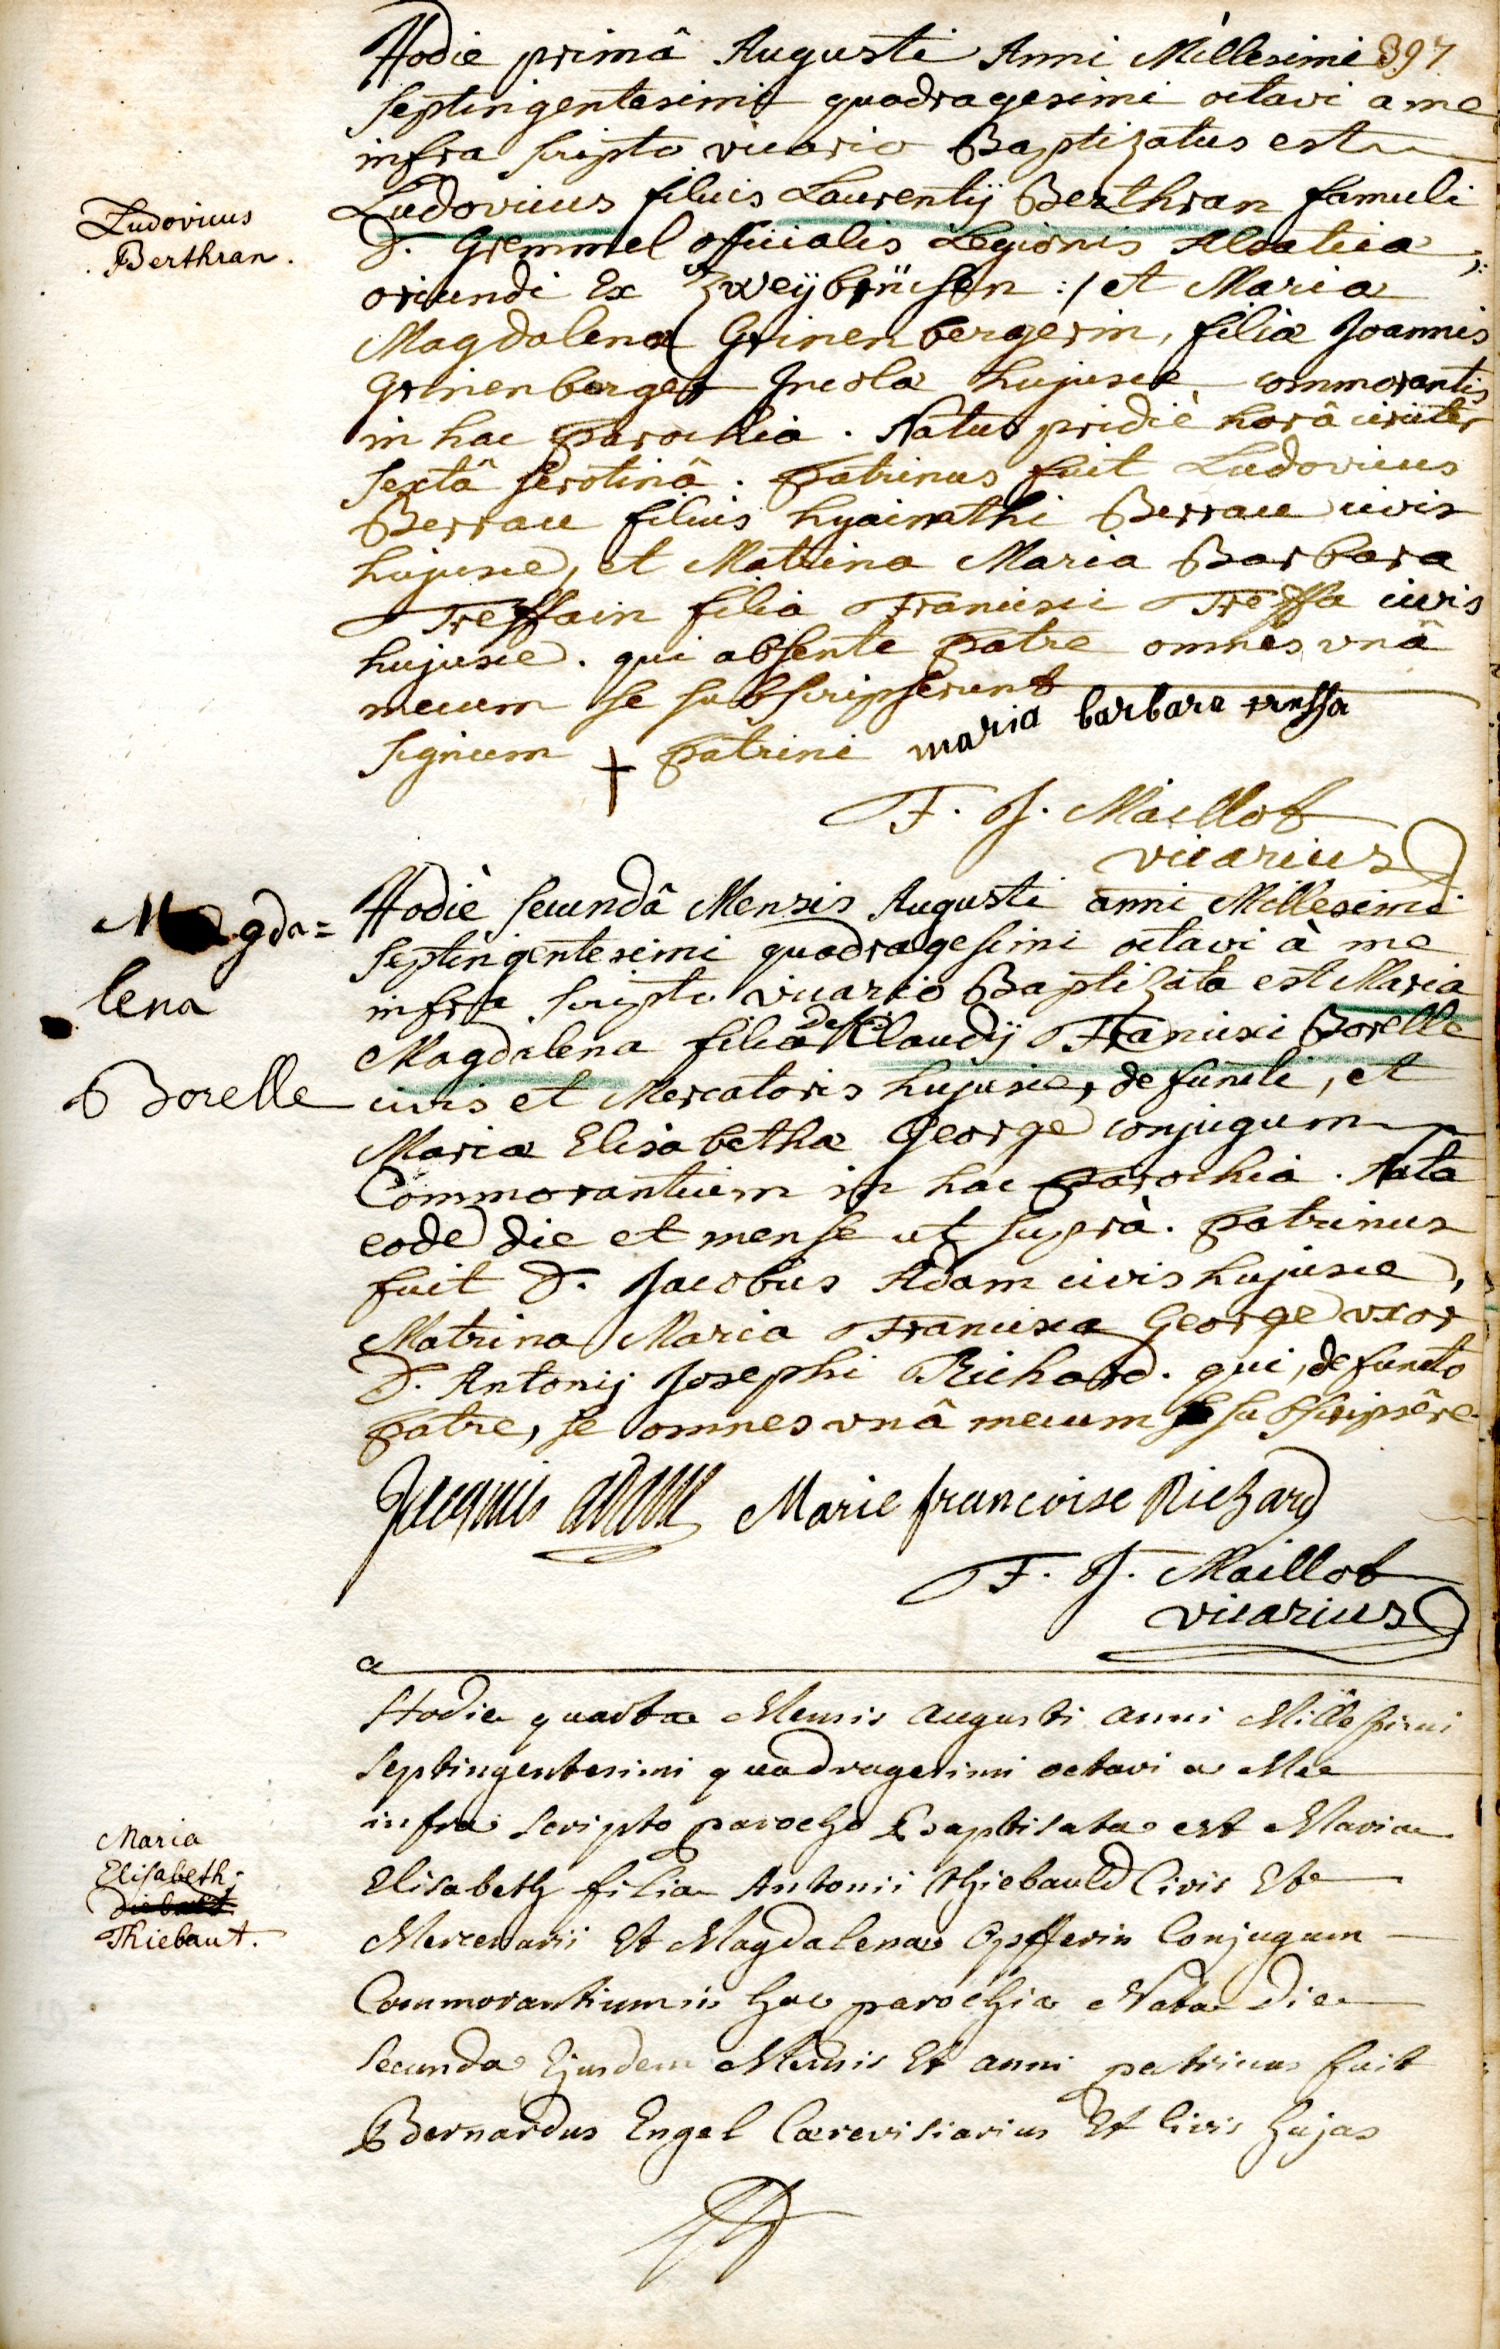 397
Hodie primâ Augusti Anni Millesimi
Septingentesimi quadragesimi octavi a me
infra scripto vicario Baptizatus est
Ludovicus filius Laurentij Berthran famuli
D. Gremmel officialis Legionis Alsatica,
oriundi Ex Zweÿbrücken :/ et Maria
Magdalena Grinenbergerin, filiæ Joannis
Grinenberger Incolæ hujusce commorantis
in hac parochia. Natus pridiè horâ circiter
sextâ serotinâ. patrinus fuit Ludovicus
Berrau filius hyacinthi Berrau civis
hujusce, et Matrina Maria Barbara
Treffain filia Francisci Treffa civis
hujusce. qui absente patre omnes unâ
mecum se subscripserunt
signum + patrini maria barbara treffa
F. J. Maillot
vicarius
Ludovicus
Berthran.
Hodiè secundâ Mensis Augusti anni Millesimi
septingentesimi quadragesimi octavi à me
infra scripto vicario Baptizata est Maria
Magdalena filia defti Claudÿ Francisci Borelle
civis et Mercatoris hujusce, defuncti, et
Mariæ Elisabethæ George conjugum
Commorantium in hac parochia. Nata
eodē die et mense ut suprà. patrinus
fuit D. Jacobus Adam civis hujusce,
Matrina Maria Francisca George uxor
D. Antonij Josephi Richard. qui, defuncto
patre, se omnes unâ mecum subscripsêre.
Jacques adam Marie francoise Richard
F. J. Maillot
vicarius
Magda=
lena
Borelle
a
Hodie quarta Mensis augusti anni Millesimi
septingentesimi quadragesimi octavi a Me
infra scripto parocho Baptisata est Maria
Elisabeth filia Antonii thiebauld Civis Et
Mercenarii Et Magdalena Opfferin Conjugum
Commorantium in hac parochia Nata die
secunda Ejusdem Mensis Et anni patrinus fuit
Bernardus Engel Cærevisiarius Et Civis hujas
Maria
Elisabeth
Diebalt
Thiebaut.